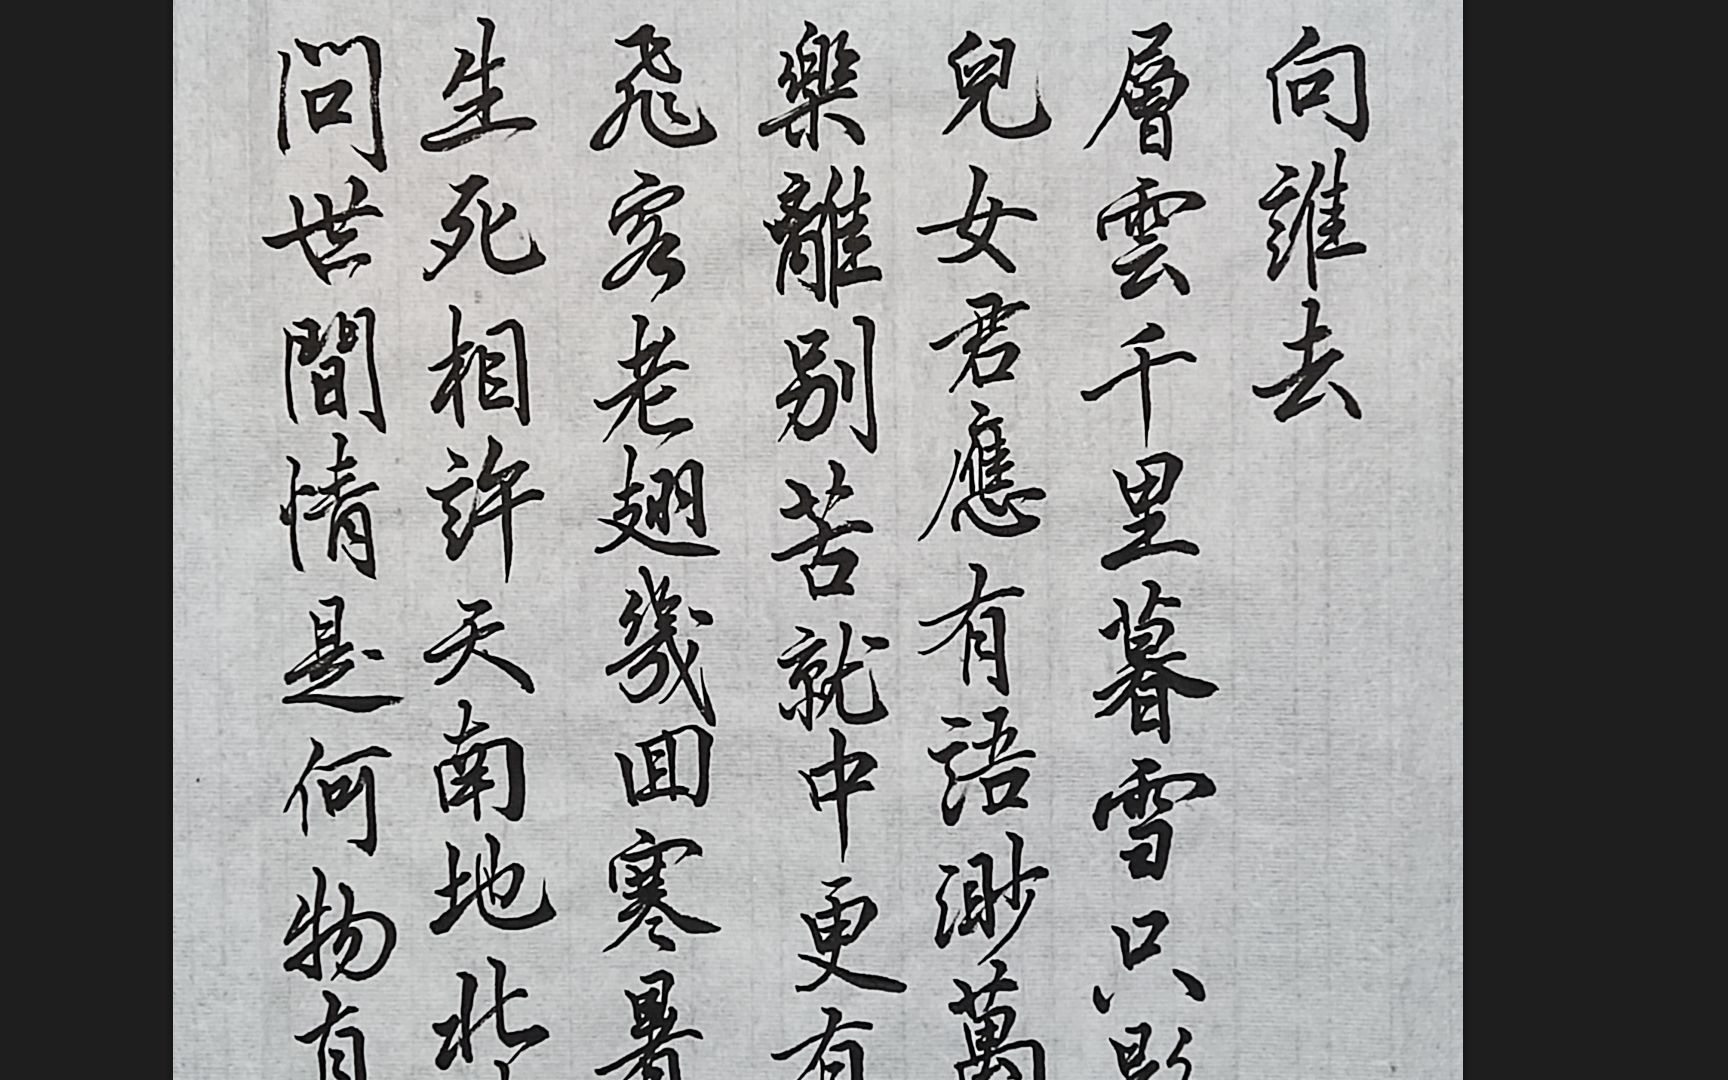 問世間情是何物直
生死相許天南地北
飛客老翅幾囬寒暑
樂離別苦就中更有
兒女君應有語渺萬
層雲千里暮雪只影
向誰去